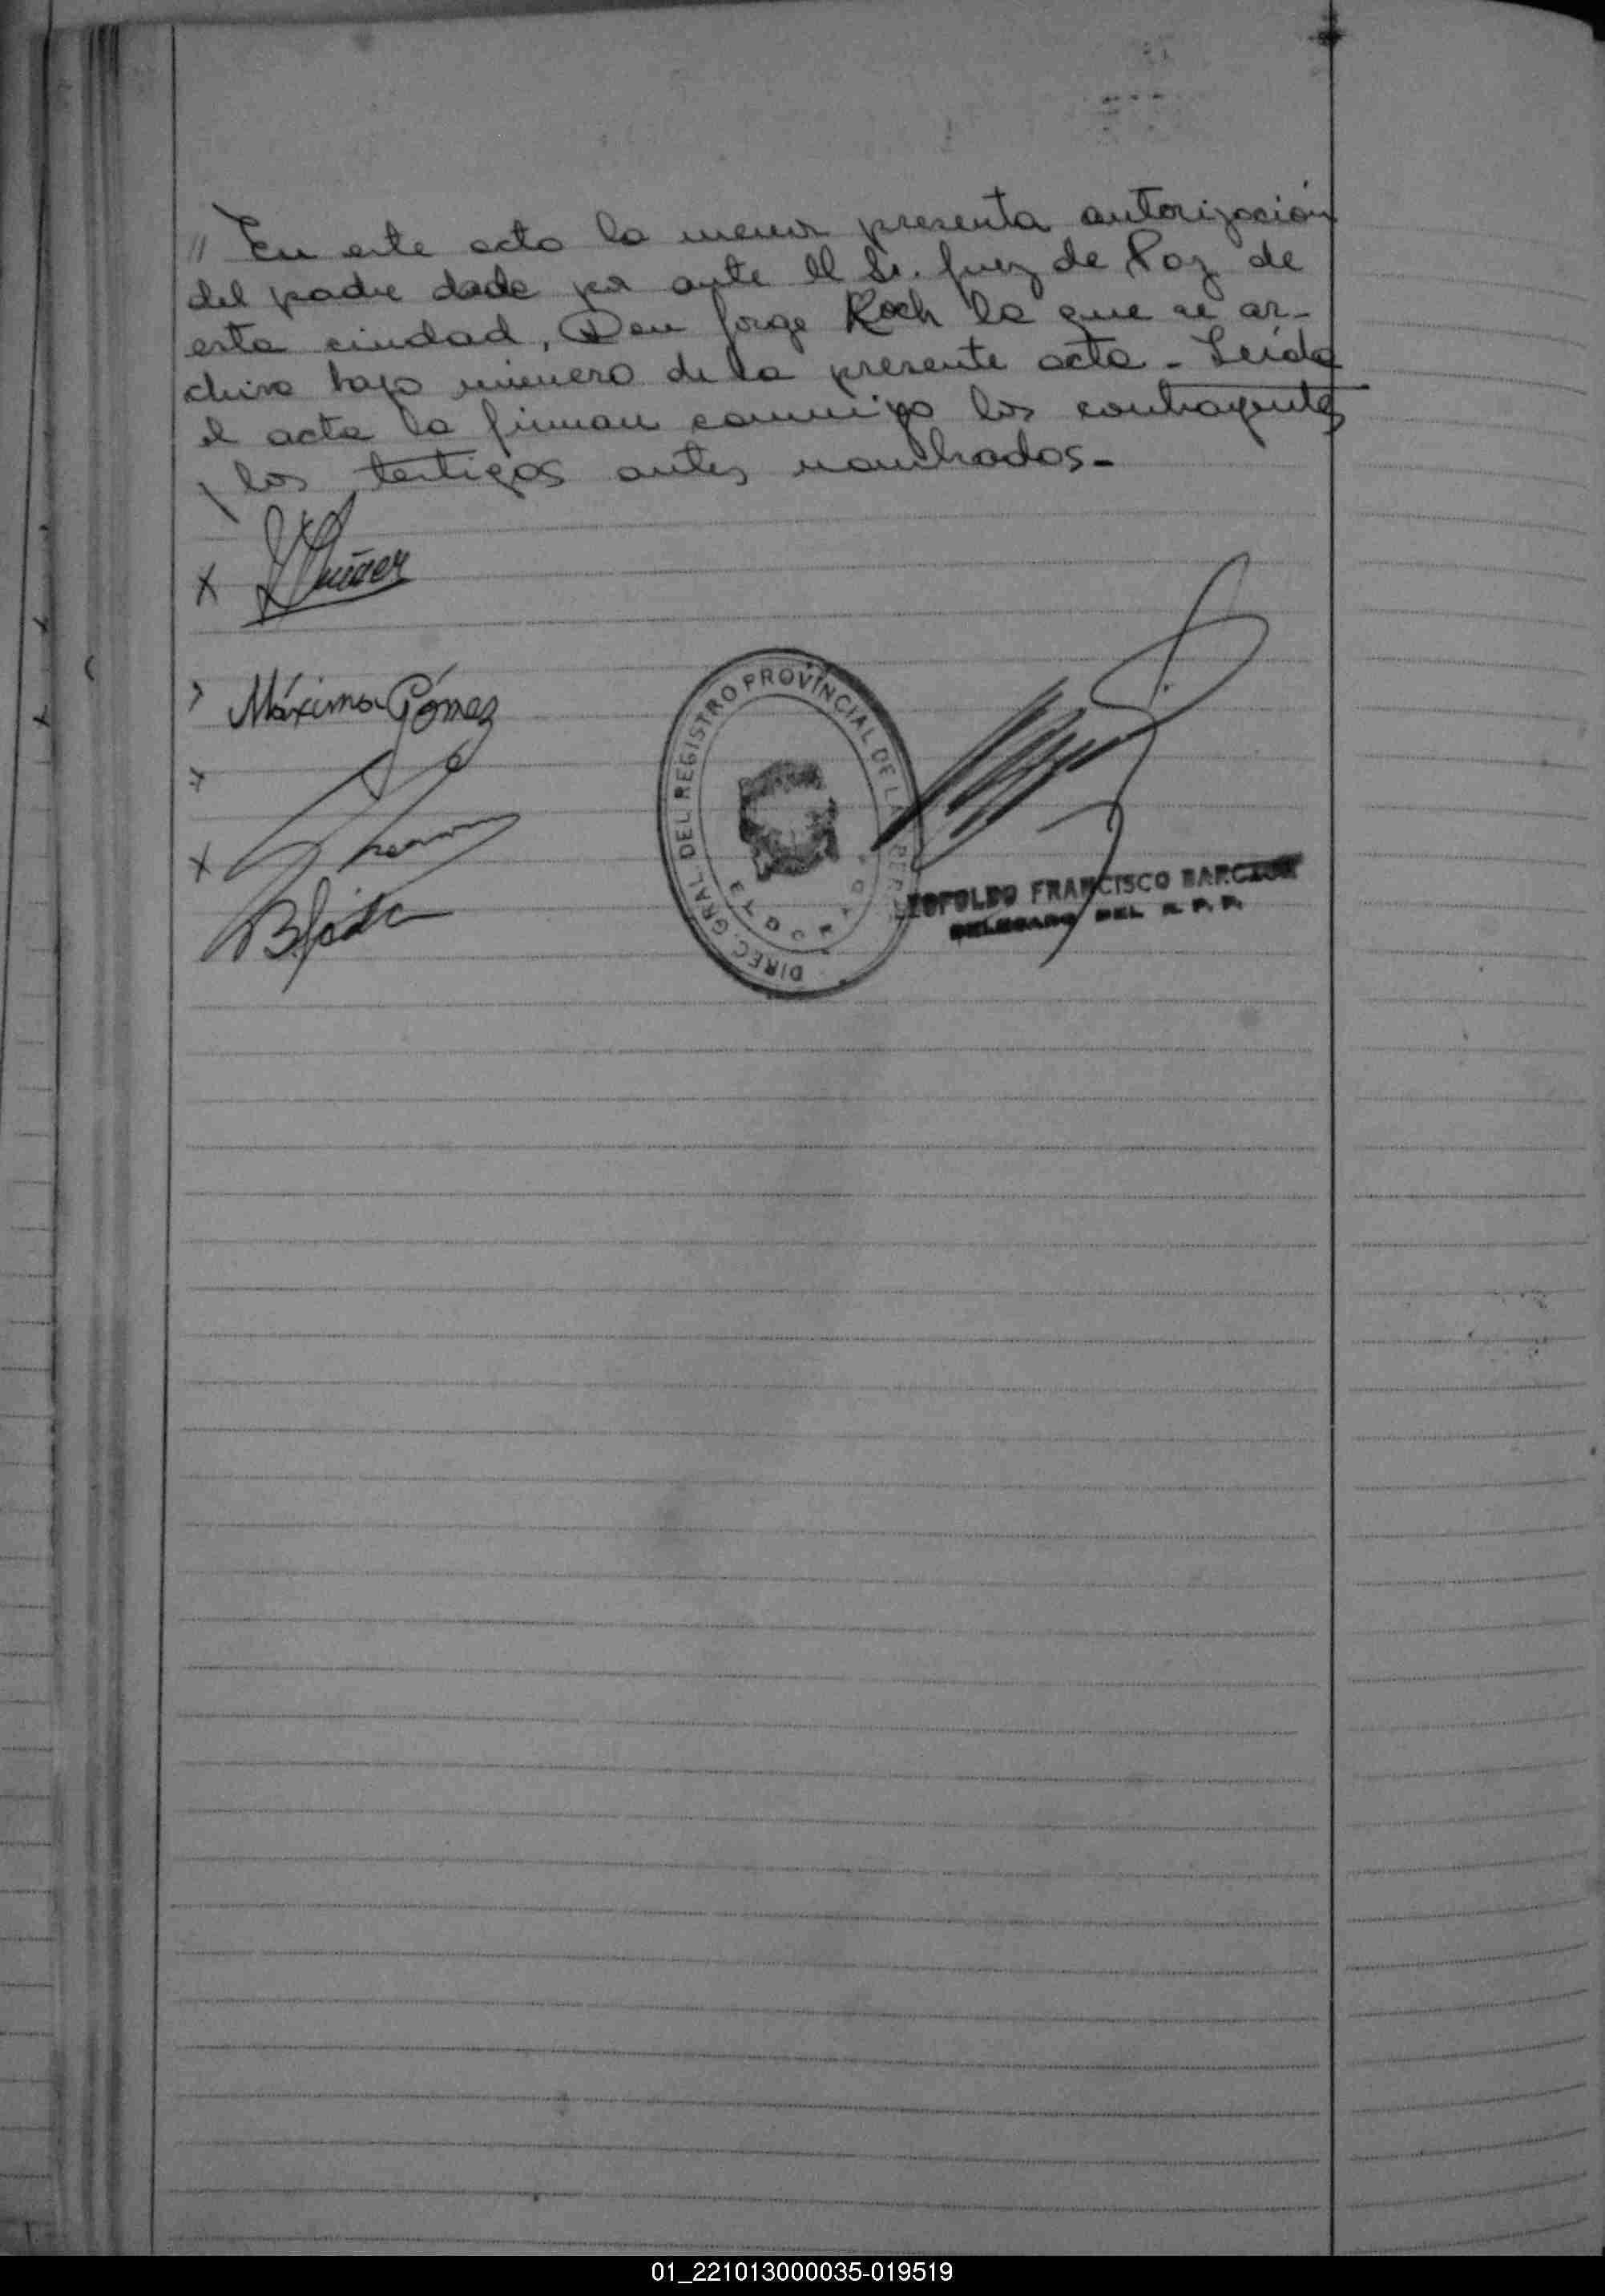 " En este acto la menor presenta autorización
del padre dada por ante el Sr. Juez de Paz de
esta ciudad, Don Jorge Koch la que se ar-
chiva bajo número de la presente acta - Leída
el acta la firman conmigo los contrayentes
y los testigos antes nombrados -
x
Máxima Gómez
x
DIREC. GRAL DEL REGISTRO PROVINCIAL DE LA
LEOPOLDO FRANCISCO
DELEGADO DEL R. P. P.
01_221013000035-019519